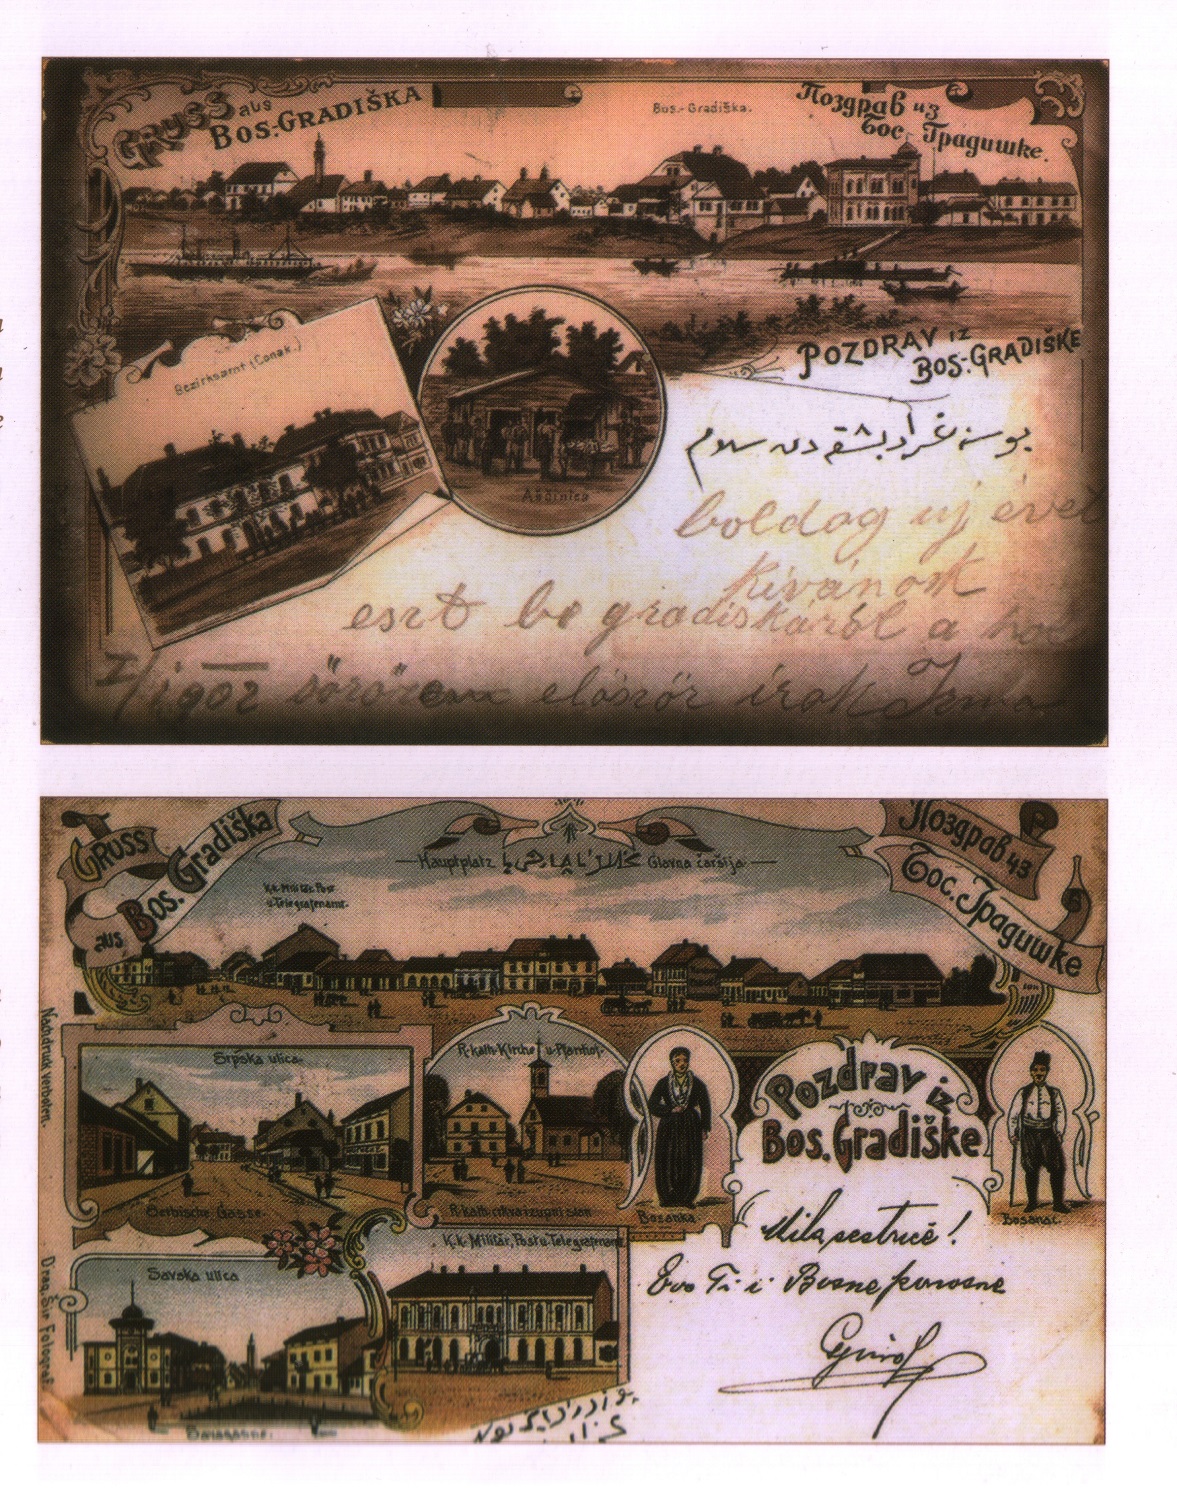 GRUSS aus
BOS.-GRADIŠKA
Bos.-Gradiška.
Поздрав из
Бос Градишке.
Bezirksamt (Conak.)
Aščinica
POZDRAV iz
BOS.-GRADIŠKE
بوسنه غرادیشقه دن سلام
boldog uj évet
kivánok
eszt bo gradiskáról a hol
I/1 1902 söröz elöször irok Irma
GRUSS
aus Bos. Gradiška
Поздрав из
Бос. Градишке
Hauptplatz Glavna čaršija
K.k. Militär. Post
u. Telegrafenamt.
Srpska ulica
Serbische Gasse
R. kath. Kirche u. Pfarrhof.
R. kath. crkva i župni stan
Bosanka
Pozdrav iz
Bos. Gradiške
Bosanac.
Savska ulica
Savagasse.
K.k. Militär, Post u. Telegrafenamt
Mila sestrice!
Evo Ti i Bosne ponosne
Nachdruck verboten.